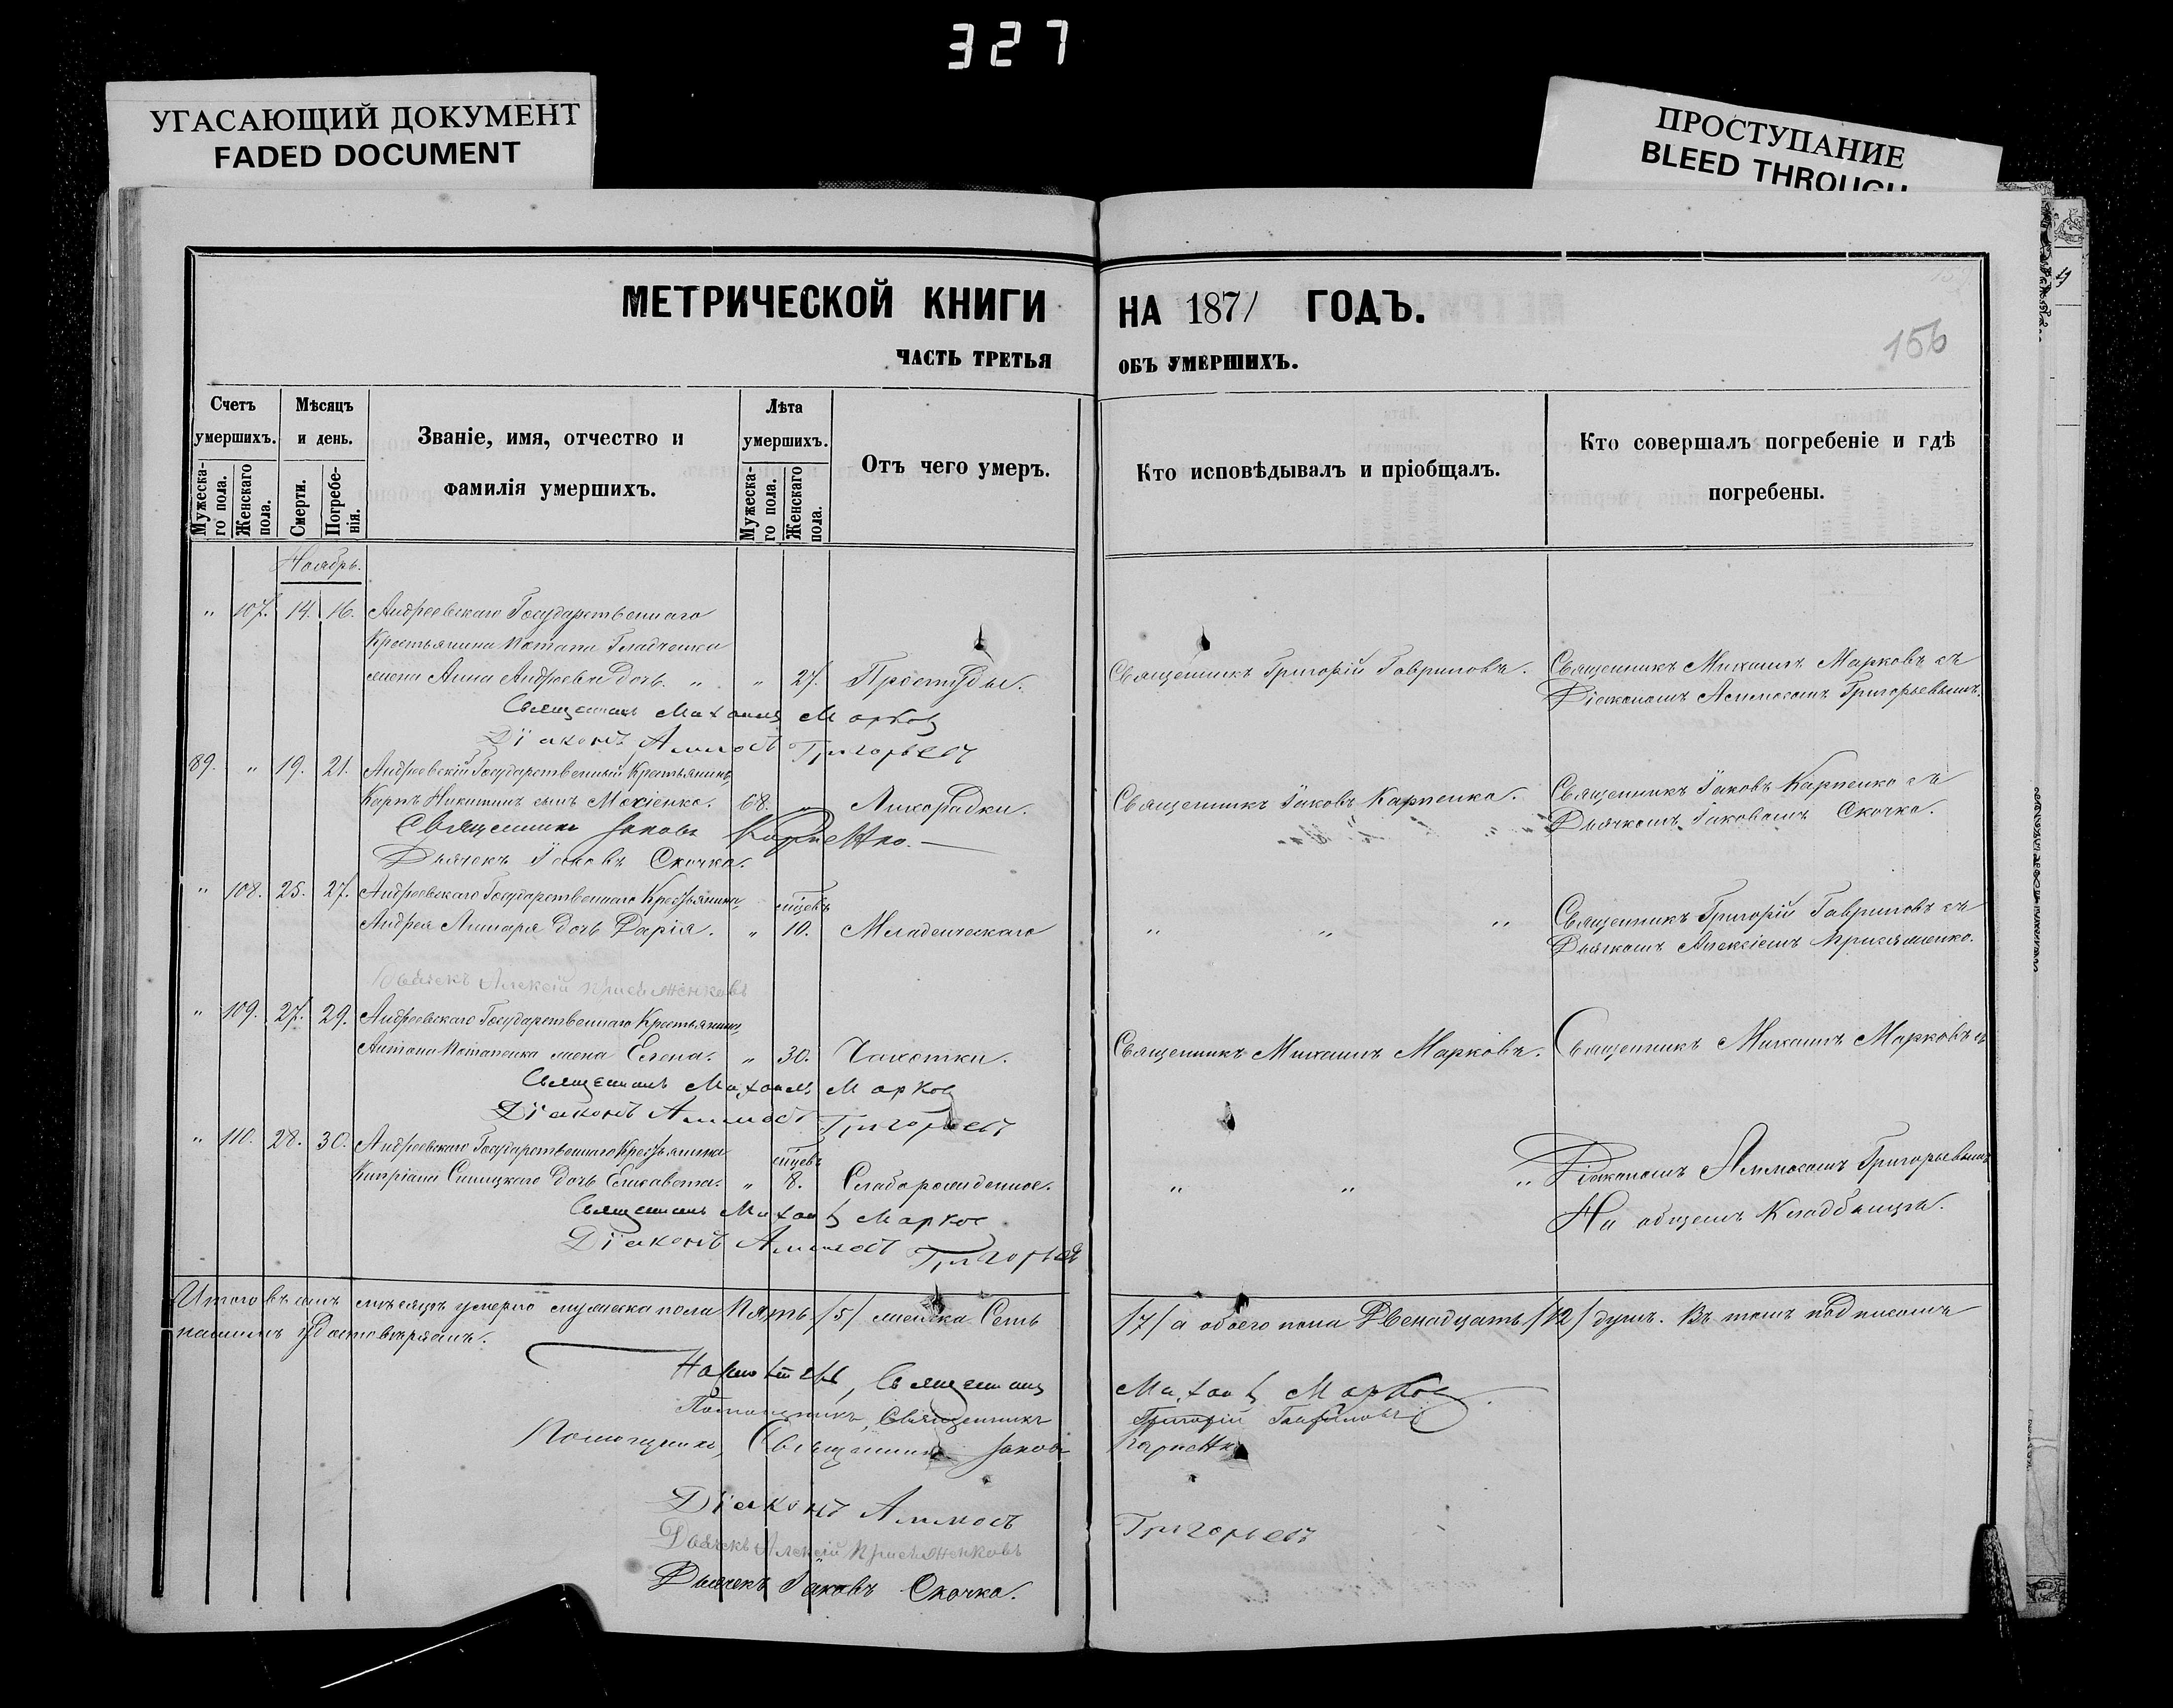 327
УГАСАЮЩИЙ ДОКУМЕНТ
FADED DOCUMENT
ПРОСТУПАНИЕ
BLEED THROUGH
МЕТРИЧЕСКОЙ КНИГИ НА 1871 ГОДЪ.
156
ЧАСТЬ ТРЕТЬЯ ОБЪ УМЕРШИХЪ.
Счетъ умершихъ.
Мужеска-го пола.
Женскаго пола.
Мѣсяцъ и день.
Смерти.
Погребе-нія.
Званіе, имя, отчество и
фамилія умершихъ.
Лѣта умершихъ.
Мужеска-го пола.
Женскаго пола.
Отъ чего умеръ.
Кто исповѣдывалъ и пріобщалъ.
Кто совершалъ погребеніе и гдѣ
погребены.
Ноябрь.
" 107. 14. 16. Андреевскаго Государственнаго
Крестьянина Потапа Гладченка
жена Анна Андреева дочь. " " 27. Простуды. Священникъ Григорій Гавриловъ. Священникъ Михаилъ Марковъ съ
Діакономъ Аммосомъ Григорьевымъ.
Священникъ Михаилъ Марковъ
Діаконъ Аммосъ Григорьевъ
89. " 19. 21. Андреевскій Государственный Крестьянинъ
Карпъ Никитинъ сынъ Моксіенко. 68. " Лихорадки. Священникъ Іаковъ Карпенко. Священникъ Іаковъ Карпенко съ
Дьячкомъ Іаковомъ Скочко.
Священникъ Іаковъ Карпенко.
Дьячекъ Іаковъ Скочко.
" 108. 25. 27. Андреевскаго Государственнаго Крестьянина
Андрея дочь Дарія. " мѣсцевъ 10. Младенческаго " " " Священникъ Григорій Гавриловъ съ
Дьячкомъ Алексіемъ
Дьячекъ Алексій
" 109. 27. 29. Андреевскаго Государственнаго Крестьянина
Антона Потапенка жена Елена. " 30. Чахотки. Священникъ Михаилъ Марковъ. Священникъ Михаилъ Марковъ съ
Священникъ Михаилъ Марковъ
Діаконъ Аммосъ Григорьевъ
" 110. 28. 30. Андреевскаго Государственнаго Крестьянина
Кипріана Синицкаго дочь Елисавета. " мѣсцевъ 8. Слаборожденное. " " " Діакономъ Аммосомъ Григорьевымъ
На общемъ Кладбищѣ.
Священникъ Михаилъ Марковъ
Діаконъ Аммосъ Григорьевъ
Итого въ семъ мѣсяцѣ умерло мужска пола Пять /5/ женска Семь /7/ а обоего пола Двенадцать /12/ душъ. Въ томъ подписомъ
нашимъ удостовѣряемъ.
Настоятель, Священникъ Михаилъ Марковъ
Помощникъ, Священникъ Григорій Гавриловъ
Помощникъ, Священникъ Іаковъ Карпенко
Діаконъ Аммосъ Григорьевъ
Дьячекъ Алексій
Дьячекъ Іаковъ Скочко.